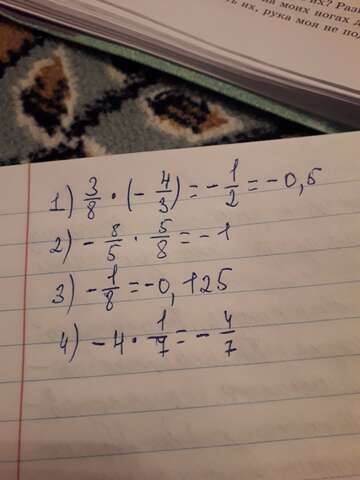 их? Раз
на моих ногах
ть их, рука моя не по
1) 3/8 · (- 4/3) = - 1/2 = -0,5
2) - 8/5 · 5/8 = -1
3) - 1/8 = -0,125
4) -4 · 1/7 = - 4/7